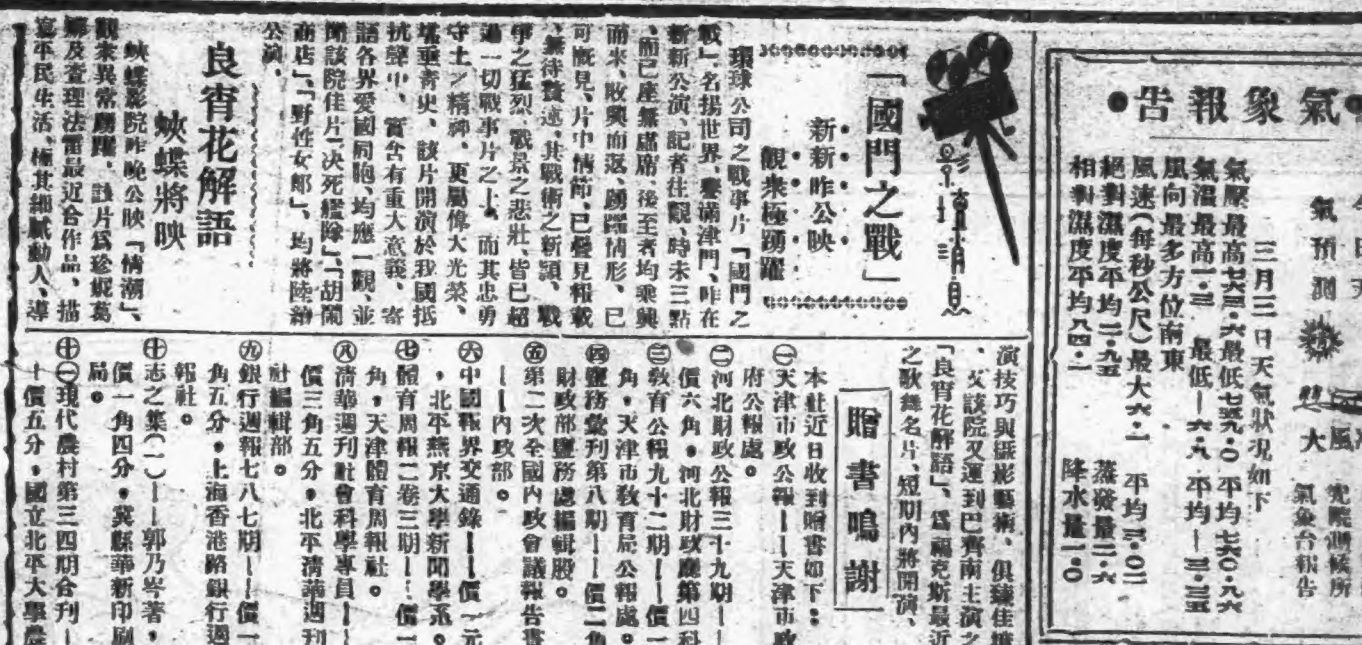 氣象報告
氣預測
大風
氣象台報告
三月三日天氣狀況如下
氣壓最高七六三·六最低七五九·〇平均七六〇·九六
氣溫最高一·三 最低—六·九·平均—三·三五
風向最多方位南東
風速(每秒公尺)最大六·一 平均三·〇二
絕對濕度平均二·九五 蒸發量二·六
相對濕度平均八四·二 降水量一·〇
「國門之戰」
新新昨公映
觀衆極踴躍
環球公司之戰事片「國門之
戰」、名揚世界、譽滿津門、昨在
新新公演、記者往觀、時未三點
、而已座無虛席、後至者均乘興
而來、敗興而返、踴躍情形、已
可概見、片中情節、已疊見報載
、無待贅述、其戰術之新穎、戰
爭之猛烈、戰景之悲壯、皆已超
過一切戰事片之上、而其忠勇
守土之精神、更屬偉大光榮、
堪垂青史、該片開演於我國抵
抗聲中、實含有重大意義、寄
語各界愛國同胞、均應一觀、並
聞該院佳片「決死艦隊」、「胡鬧
商店」、「野性女郎」、均將陸續
公演、
良宵花解語
蛺蝶將映
蛺蝶影院昨晚公映「情潮」、
觀衆異常踴躍、該片爲珍妮葛
娜及查理法雷最近合作品、描
寫平民生活、極其細膩動人、導
演技巧與攝影藝術、俱臻佳境
、又該院又運到巴齊南主演之
「良宵花解語」、爲福克斯最近
之歌舞名片、短期內將開演、
贈書鳴謝
本社近日收到贈書如下:
㊀天津市政公報——天津市政
府公報處。
㊁河北財政公報三十九期——
價六角,河北財政廳第四科
㊂敎育公報九十二期——價一
角,天津市敎育局公報處。
㊃鹽務彙刊第八期——價二角
財政部鹽務處編輯股。
㊄第二次全國內政會議報告書
——內政部。
㊅中國報界交通錄——價一元
,北平燕京大學新聞學系。
㊆體育周報二卷三期——價一
角,天津體育周報社。
㊇淸華週刊社會科學專員——
價三角五分,北平淸華週刊
社編輯部。
㊈銀行週報七八七期——價一
角五分,上海香港路銀行週
報社。
㊉志之集(一)——郭乃岑著,
價一角四分,冀縣華新印刷
局。
㊉㊀現代農村第三四期合刊—
—價五分,國立北平大學農